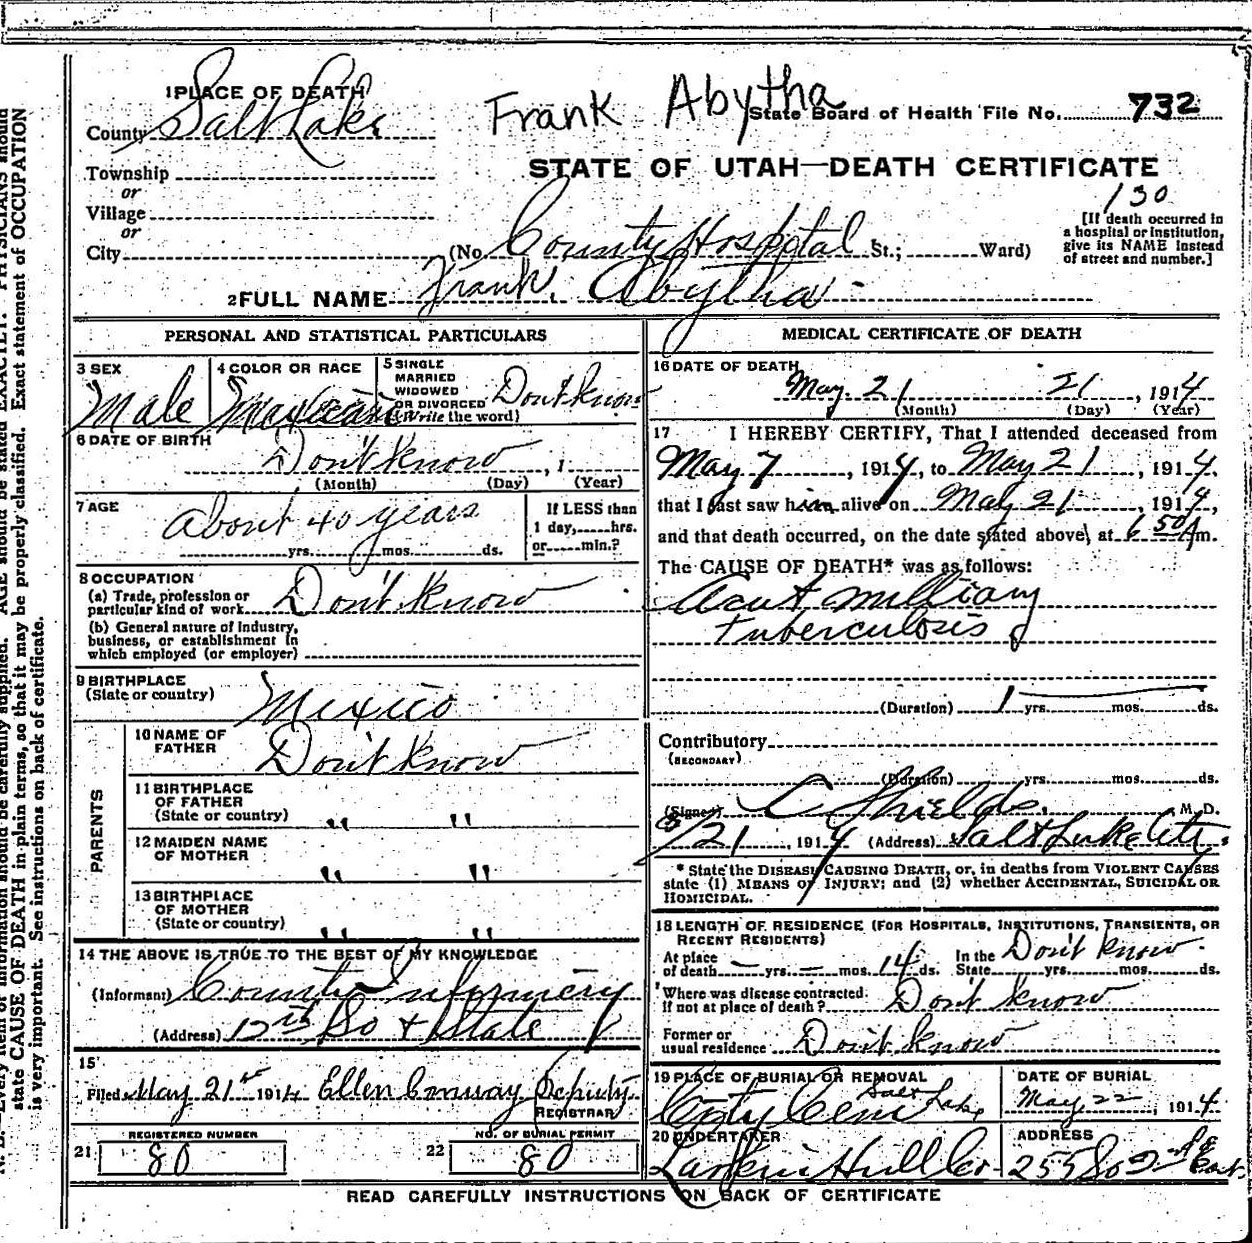 Frank Abytha
1 PLACE OF DEATH
County Salt Lake
State Board of Health File No. 732
Township
STATE OF UTAH—DEATH CERTIFICATE
or
Village
130
or
City
(No. County Hospital St.; Ward)
[If death occurred in
a hospital or institution,
give its NAME instead
of street and number.]
2 FULL NAME Frank Abytha
PERSONAL AND STATISTICAL PARTICULARS
3 SEX
Male
4 COLOR OR RACE
Mexican
5 SINGLE
MARRIED
WIDOWED
OR DIVORCED
(Write the word)
Don't know
6 DATE OF BIRTH
Don't know, 1
(Month) (Day) (Year)
7 AGE
about 40 years
yrs. mos. ds.
If LESS than
1 day, hrs.
or min.?
8 OCCUPATION
(a) Trade, profession or
particular kind of work Don't Know
(b) General nature of industry,
business, or establishment in
which employed (or employer)
9 BIRTHPLACE
(State or country)
Mexico
PARENTS
10 NAME OF
FATHER
Don't Know
11 BIRTHPLACE
OF FATHER
(State or country)
" "
12 MAIDEN NAME
OF MOTHER
" "
13 BIRTHPLACE
OF MOTHER
(State or country)
" "
14 THE ABOVE IS TRUE TO THE BEST OF MY KNOWLEDGE
(Informant) County Infirmery
(Address) 12th So + State
15
Filed May 21st 1914 Ellen Conway Deputy
REGISTRAR
REGISTERED NUMBER
21 80
NO. OF BURIAL PERMIT
22 80
MEDICAL CERTIFICATE OF DEATH
16 DATE OF DEATH
May. 21 21, 1914
(Month) (Day) (Year)
17 I HEREBY CERTIFY, That I attended deceased from
May 7, 1914, to May 21, 1914.
that I last saw him alive on May 21, 1914,
and that death occurred, on the date stated above, at 6 50 A m.
The CAUSE OF DEATH* was as follows:
Acut milliary
tuberculosis
(Duration) 1 yrs. mos. ds.
Contributory
(SECONDARY)
(Duration) yrs. mos. ds.
(Signed) C Shields. M. D.
5/21, 1914 (Address) Salt Lake City.
* State the DISEASE CAUSING DEATH, or, in deaths from VIOLENT CAUSES
state (1) MEANS OF INJURY; and (2) whether ACCIDENTAL, SUICIDAL OR
HOMICIDAL.
18 LENGTH OF RESIDENCE (FOR HOSPITALS, INSTITUTIONS, TRANSIENTS, OR
RECENT RESIDENTS)
At place
of death — yrs. — mos. 14 ds.
In the
State yrs. mos. ds.
Don't know
Where was disease contracted
If not at place of death? Don't know
Former or
usual residence Don't know
19 PLACE OF BURIAL OR REMOVAL
City Cem Salt Lake
DATE OF BURIAL
May 22, 1914
20 UNDERTAKER
Larkin Hull Co.
ADDRESS
255 So 2nd East
READ CAREFULLY INSTRUCTIONS ON BACK OF CERTIFICATE
state CAUSE OF DEATH in plain terms, so that it may be properly classified. Exact statement of OCCUPATION
is very important. See instructions on back of certificate.